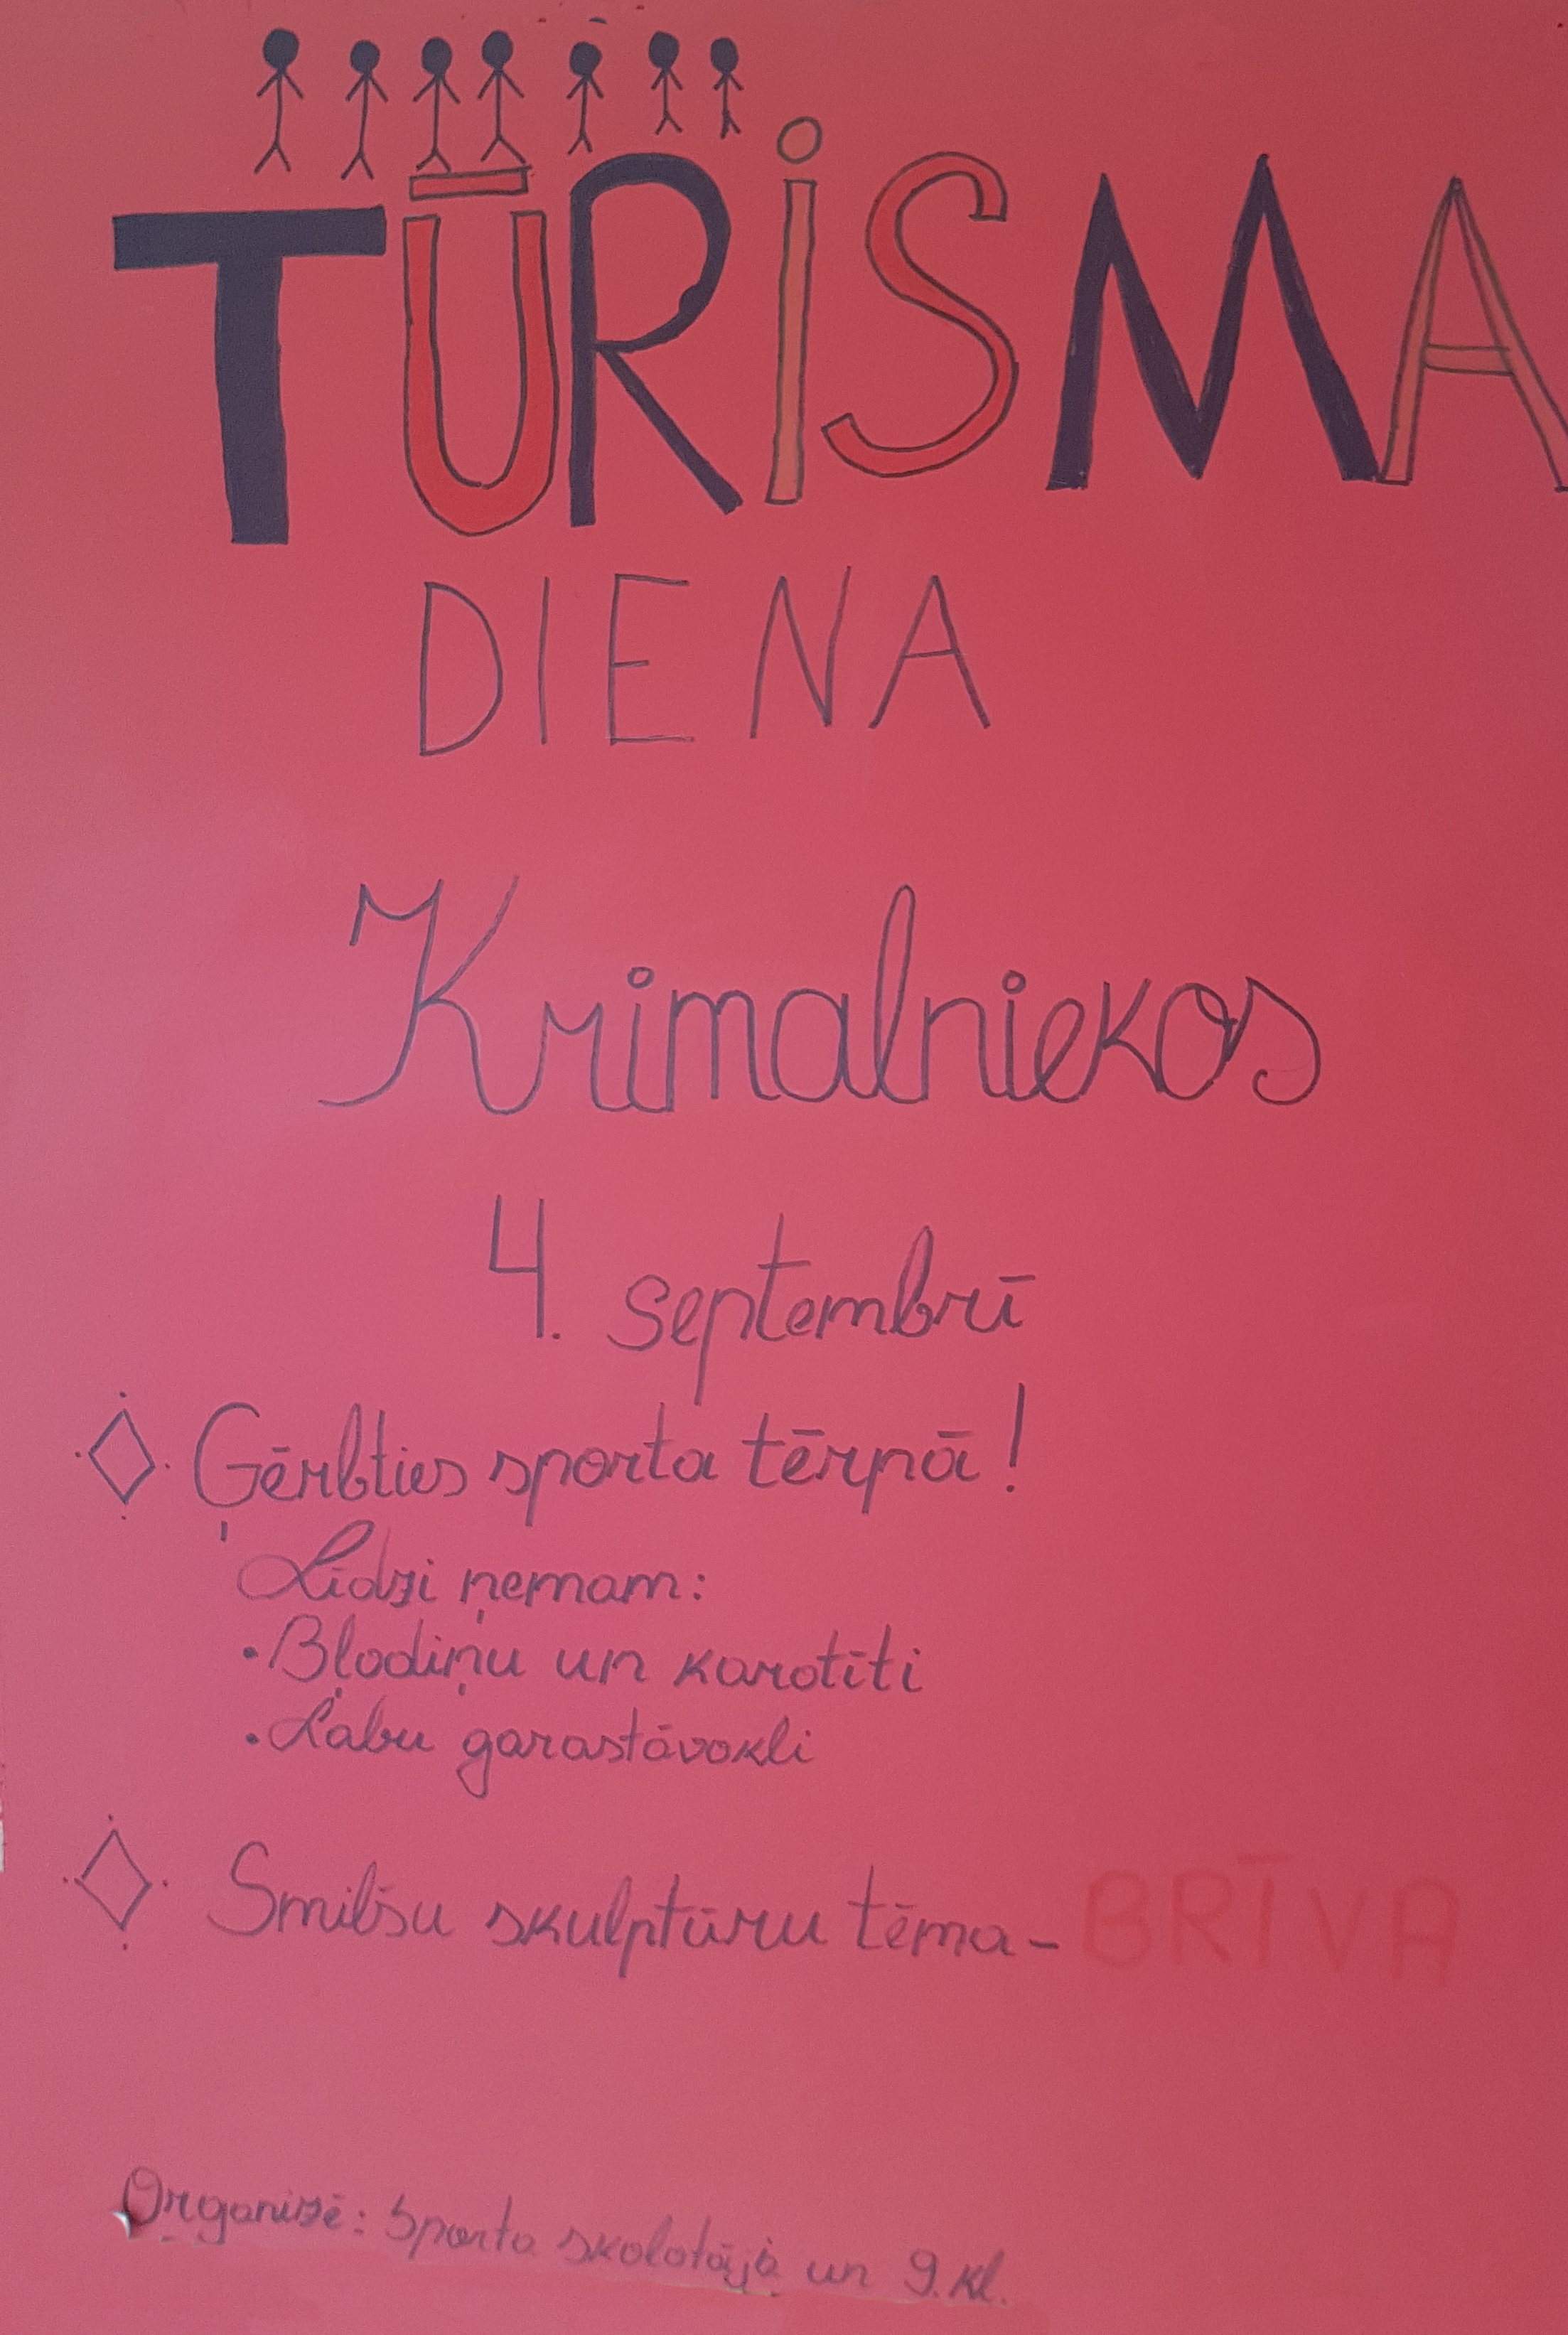 TŪRiSMA
DIENA
Krimalniekos
4. septembrī
Ģērbties sporta tērpā!
Līdzi ņemam:
• Bļodiņu un karotīti
• Labu garastāvokli
Smilšu skulptūru tēma - BRĪVA
Organizē: Sporta skolotāja un 9. kl.